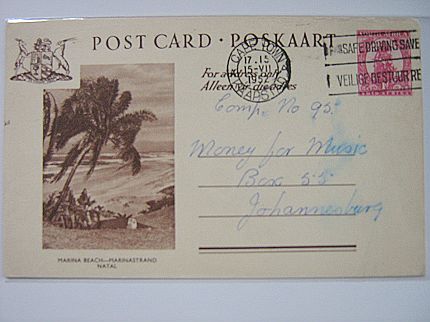 POST CARD · POSKAART
CAPE TOWN
17.15
15-VII
1952
KAAPSTAD
SAFE DRIVING SAVE
VEILIGE BESTUUR RE
For address only
Alleen vir adres
Comp. No 95.
Money for Music
Box 55
Johannesburg
MARINA BEACH—MARINASTRAND
NATAL